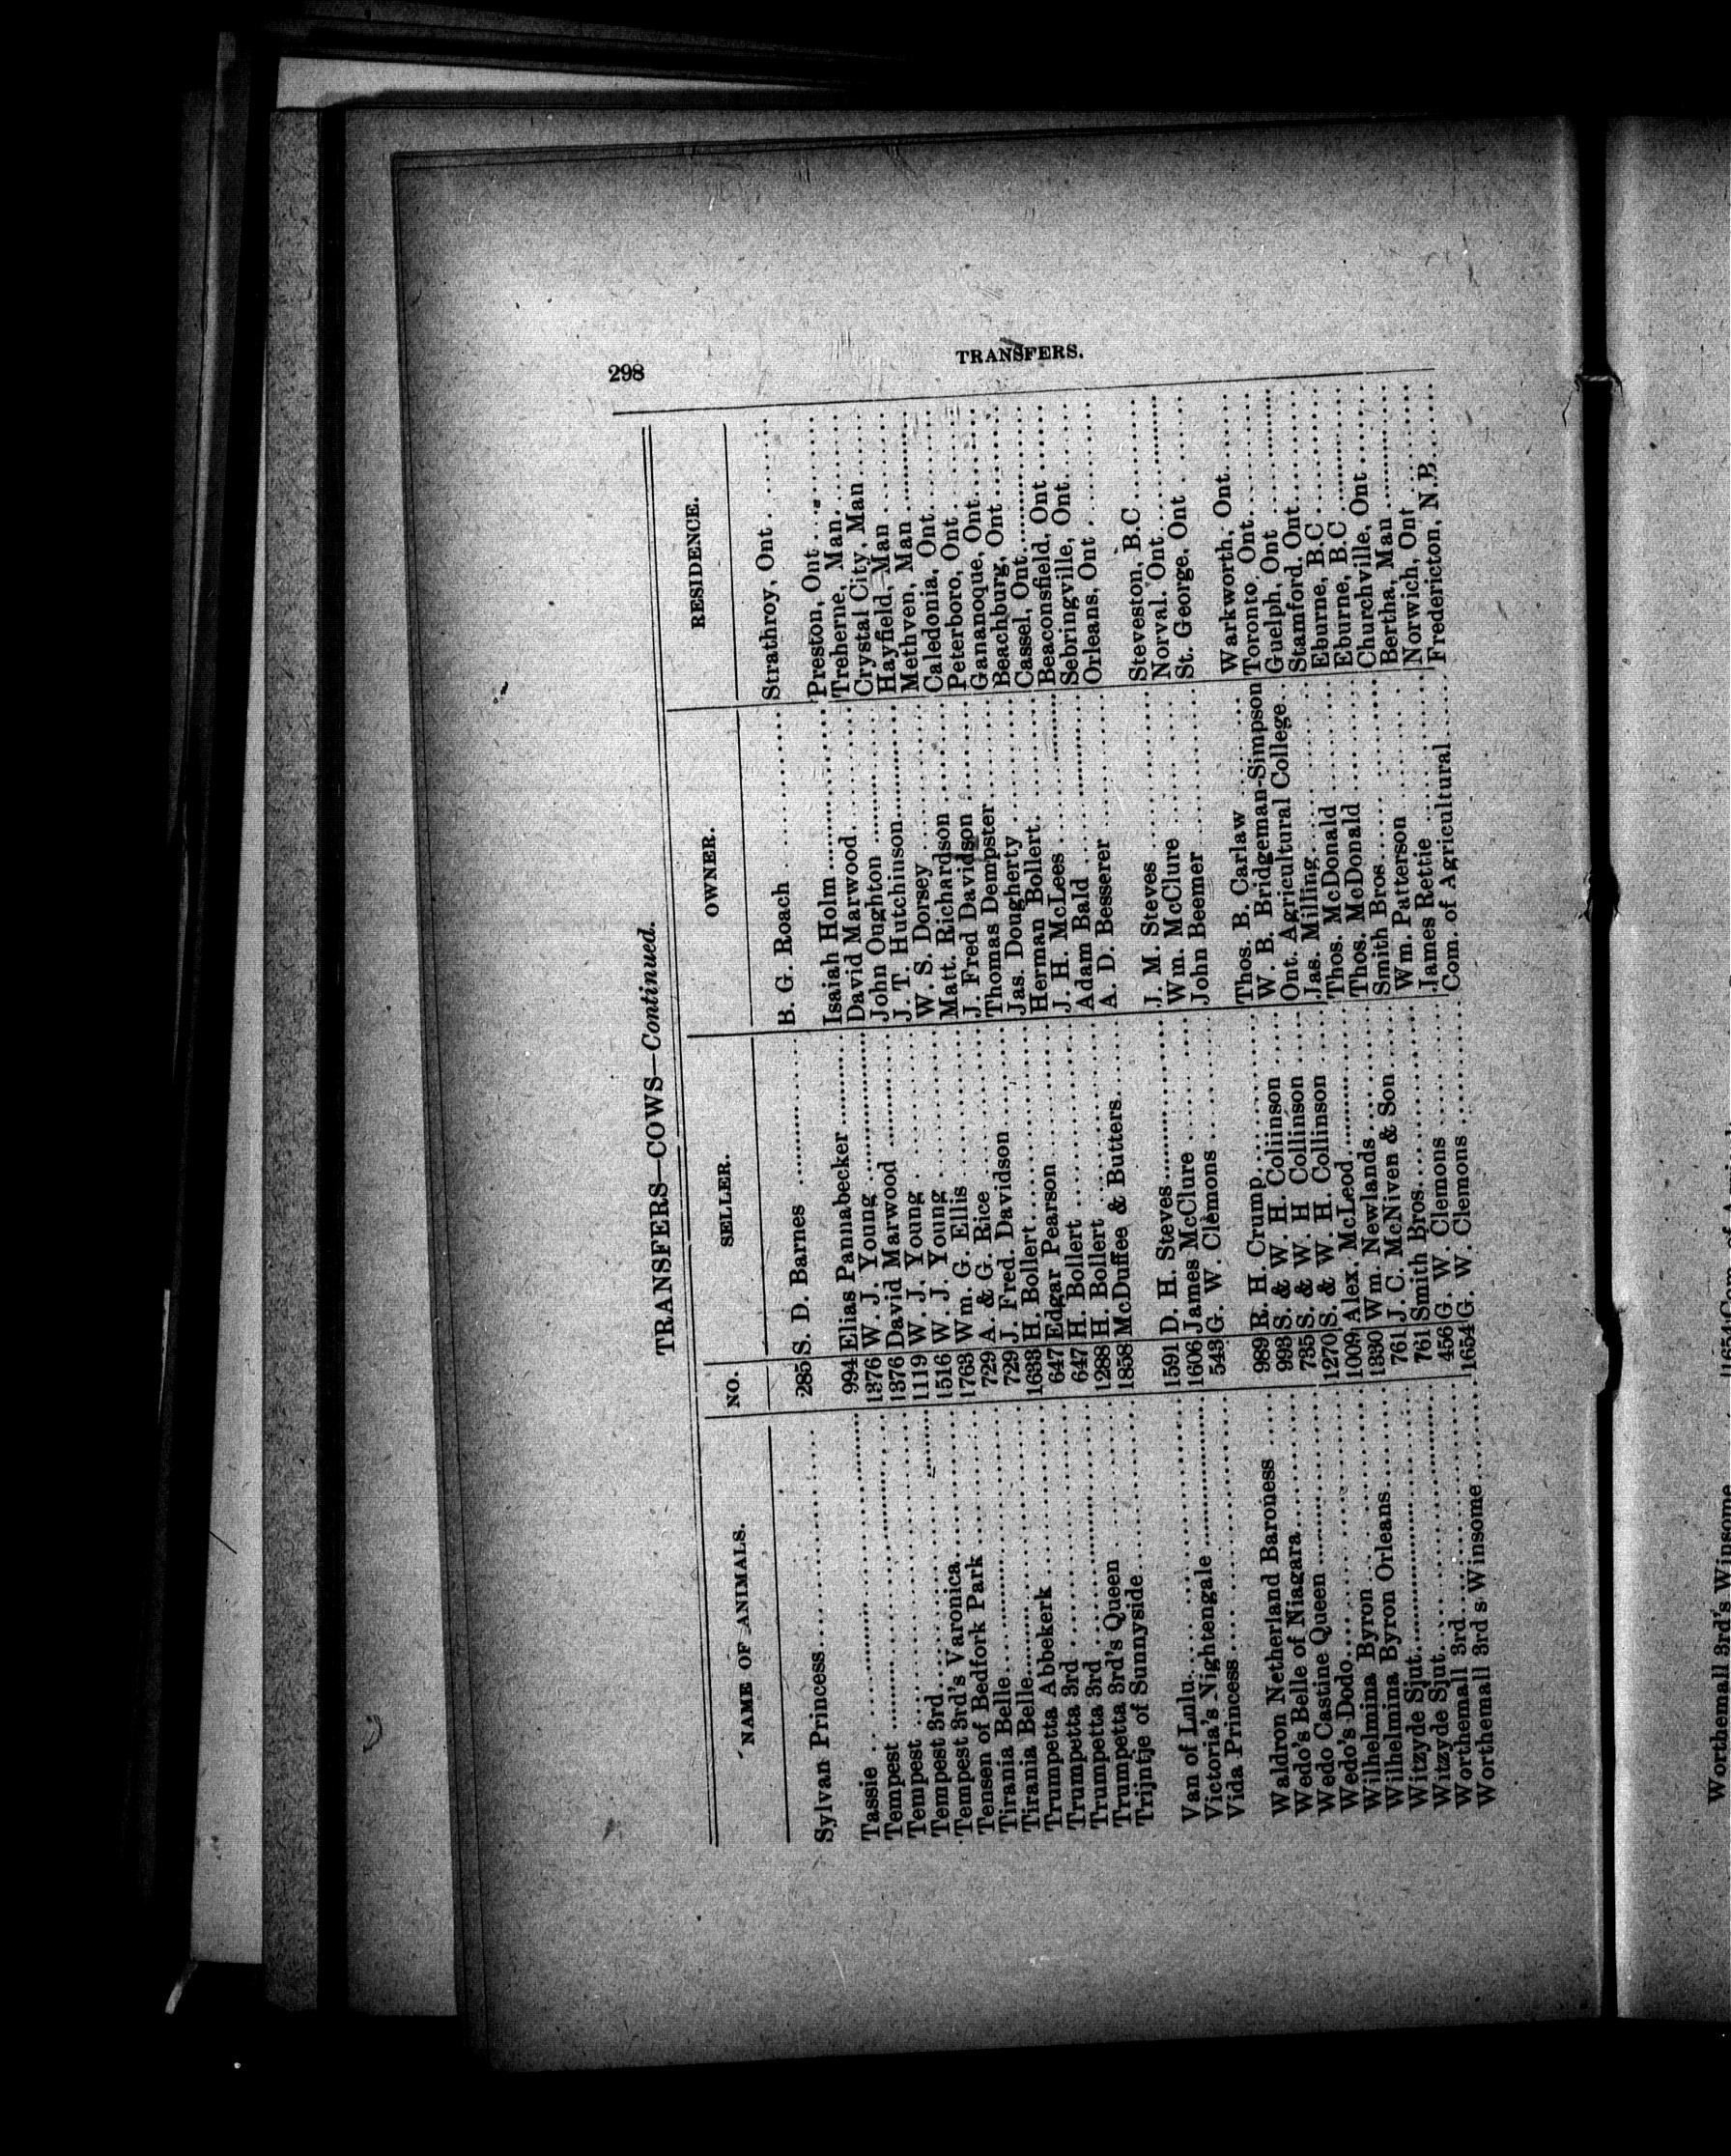 298
TRANSFERS.
TRANSFERS—COWS—Continued.
NAME OF ANIMALS. NO. SELLER. OWNER. RESIDENCE.
Sylvan Princess 285 S. D. Barnes B. G. Roach Strathroy, Ont
Tassie 994 Elias Pannabecker Isaiah Holm Preston, Ont
Tempest 1376 W. J. Young David Marwood Treherne, Man
Tempest 1376 David Marwood John Oughton Crystal City, Man
Tempest 3rd 1119 W. J. Young J. T. Hutchinson Hayfield, Man
Tempest 3rd's Varonica 1516 W. J. Young W. S. Dorsey Methven, Man
Tensen of Bedfork Park 1763 Wm. G. Ellis Matt. Richardson Caledonia, Ont
Tirania Belle 729 A. & G. Rice J. Fred Davidson Peterboro, Ont
Tirania Belle 729 J. Fred. Davidson Thomas Dempster Gananoque, Ont
Trumpetta Abbekerk 1633 H. Bollert Jas. Dougherty Beachburg, Ont
Trumpetta 3rd 647 Edgar Pearson Herman Bollert Cassel, Ont
Trumpetta 3rd 647 H. Bollert J. H. McLees Beaconsfield, Ont
Trumpetta 3rd's Queen 1288 H. Bollert Adam Bald Sebringville, Ont
Trijntje of Sunnyside 1858 McDuffee & Butters A. D. Besserer Orleans, Ont
Van of Lulu 1591 D. H. Steves J. M. Steves Steveston, B.C
Victoria's Nightengale 1606 James McClure Wm. McClure Norval. Ont
Vida Princess 543 G. W. Clemons John Beemer St. George, Ont
Waldron Netherland Baroness 989 R. H. Crump Thos. B. Carlaw Warkworth, Ont
Wedo's Belle of Niagara 993 S. & W. H. Collinson W. B. Bridgeman-Simpson Toronto, Ont
Wedo Castine Queen 735 S. & W. H Collinson Ont. Agricultural College Guelph, Ont
Wedo's Dodo 1270 S. & W. H. Collinson Jas. Milling Stamford, Ont
Wilhelmina Byron 1009 Alex. McLeod Thos. McDonald Eburne, B.C
Wilhelmina Byron Orleans 1330 Wm. Newlands Thos. McDonald Eburne, B.C
Witzyde Sjut 761 J. C. McNiven & Son Smith Bros Churchville, Ont
Witzyde Sjut 761 Smith Bros Wm. Patterson Bertha, Man
Worthemall 3rd 456 G. W. Clemons James Rettie Norwich, Ont
Worthemall 3rd s Winsome 1654 G. W. Clemons Com. of Agricultural Fredericton, N.B
Worthemall 3rd's Winsome